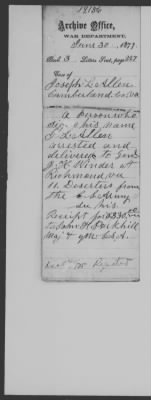 19186
Archive Office,
WAR DEPARTMENT,
June 30, 1879.
Book 3 Letters Sent, page 247
Case of
Joseph L. Allen
Cumberland Co. Va
A person who
signs his name
J. L. Allen
arrested and
delivered to Genl
J. H. Winder at
Richmond, Va
11 Deserters from
the C.S. Army
his
Receipt for $330.
to John H. Parkhill
Maj & qm C.S.A.
Rejected